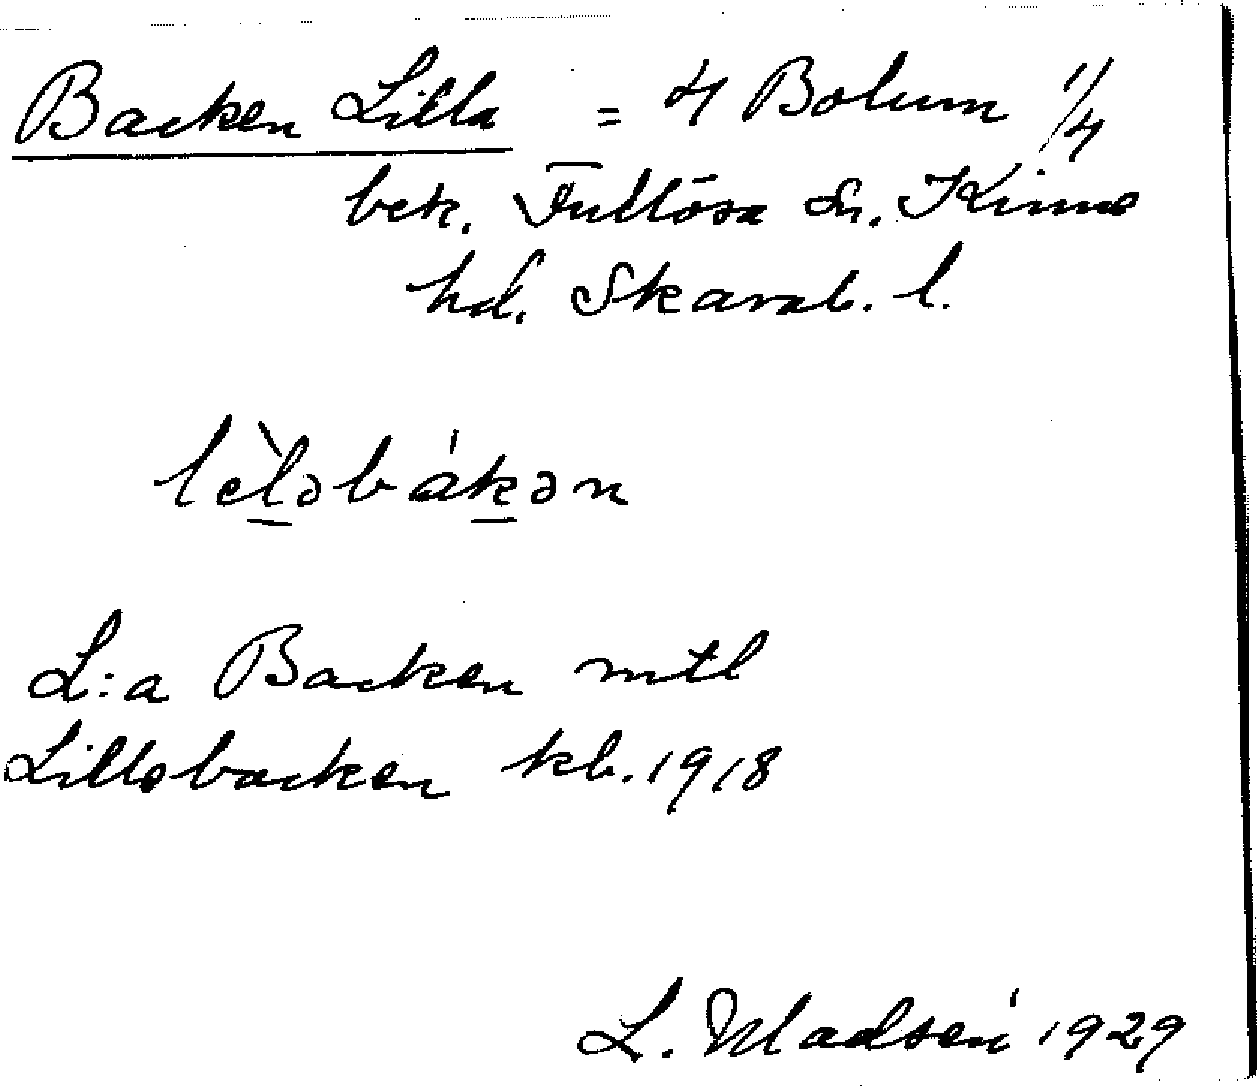 Backen Lilla = 4 Bolum 1/4
bek. Fullösa sn. Kinne
hd. Skarab. l.
lèl̠əbák̠ən
L:a Backen mtl
Lillebacken kb. 1918
L. Madsén 1929